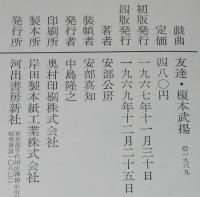 戯曲 友達・榎本武揚 ©一九六九
定価 四八〇円
初版発行 一九六七年十一月三十日
四版発行 一九六九年十二月二十五日
著者 安部公房
装幀者 安部真知
発行者 中島隆之
印刷所 奥村印刷株式会社
製本所 岸田製本紙工業株式会社
発行所 河出書房新社
東京都千代田区神田小川町